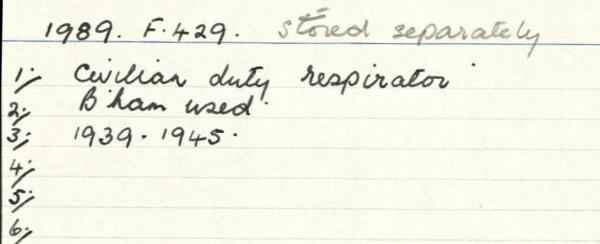 1989. F.429. Stored separately
1; Civilian duty respirator
2; B'ham used.
3; 1939-1945.
4;
5;
6;